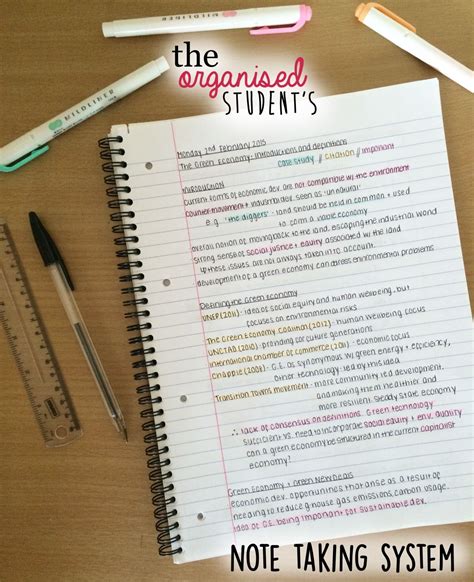 the
organised
STUDENT'S
MILDLINER
MILDLINER
Monday 2nd February 2015
The Green Economy: Introductions and definitions
case study // citation // important
INTRODUCTION
current forms of economic dev. are not compatible w/ the environment
counter-movement + industrialisation seen as 'unnatural'
e.g. 'the diggers' - land should be held in common + used
to form a viable economy
overall notion of moving back to the land, escaping the industrial world
strong sense of social justice + equity associated w/ the land
↳ these issues are not always taken in to account.
development of a green economy can across environmental problems
Defining the Green Economy
UNEP (2011) - idea of social equity and human wellbeing, but
focuses on environmental risks
The Green Economy Coalition (2012) - human wellbeing focus
UNCTAD (2010) - providing for future generations
international chamber of commerce (2011) - economic focus
Chapple (2008) - G.E. as synonymous w/ green energy + efficiency,
other technology led by this idea
Transition Towns movement - more community led development.
and making them healthier and
more resilient, steady state economy
∴ lack of consensus on definitions. Green technology
sufficient vs. need to incorporate social equity + env. quality
can a green economy be structured in the current capitalist
economy?
Green Economy + Green New Deals
economic dev. opportunities that arise as a result of
needing to reduce g'house gas emissions, carbon usage.
idea of G.E. being important for sustainable dev.
NOTE TAKING SYSTEM